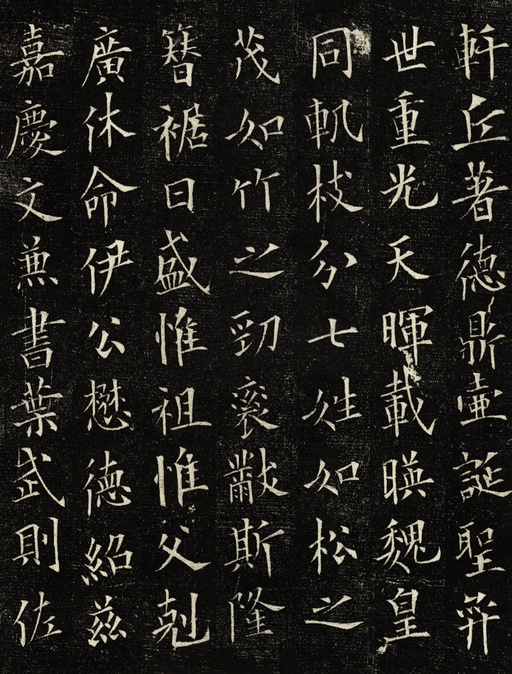 軒丘著德鼎壷誕聖弈
世重光天暉載暎魏皇
同軌枝分七姓如松之
茂如竹之勁袞黻斯隆
簪裾日盛惟祖惟父剋
廣休命伊公懋德紹兹
嘉慶文兼書葉武則佐